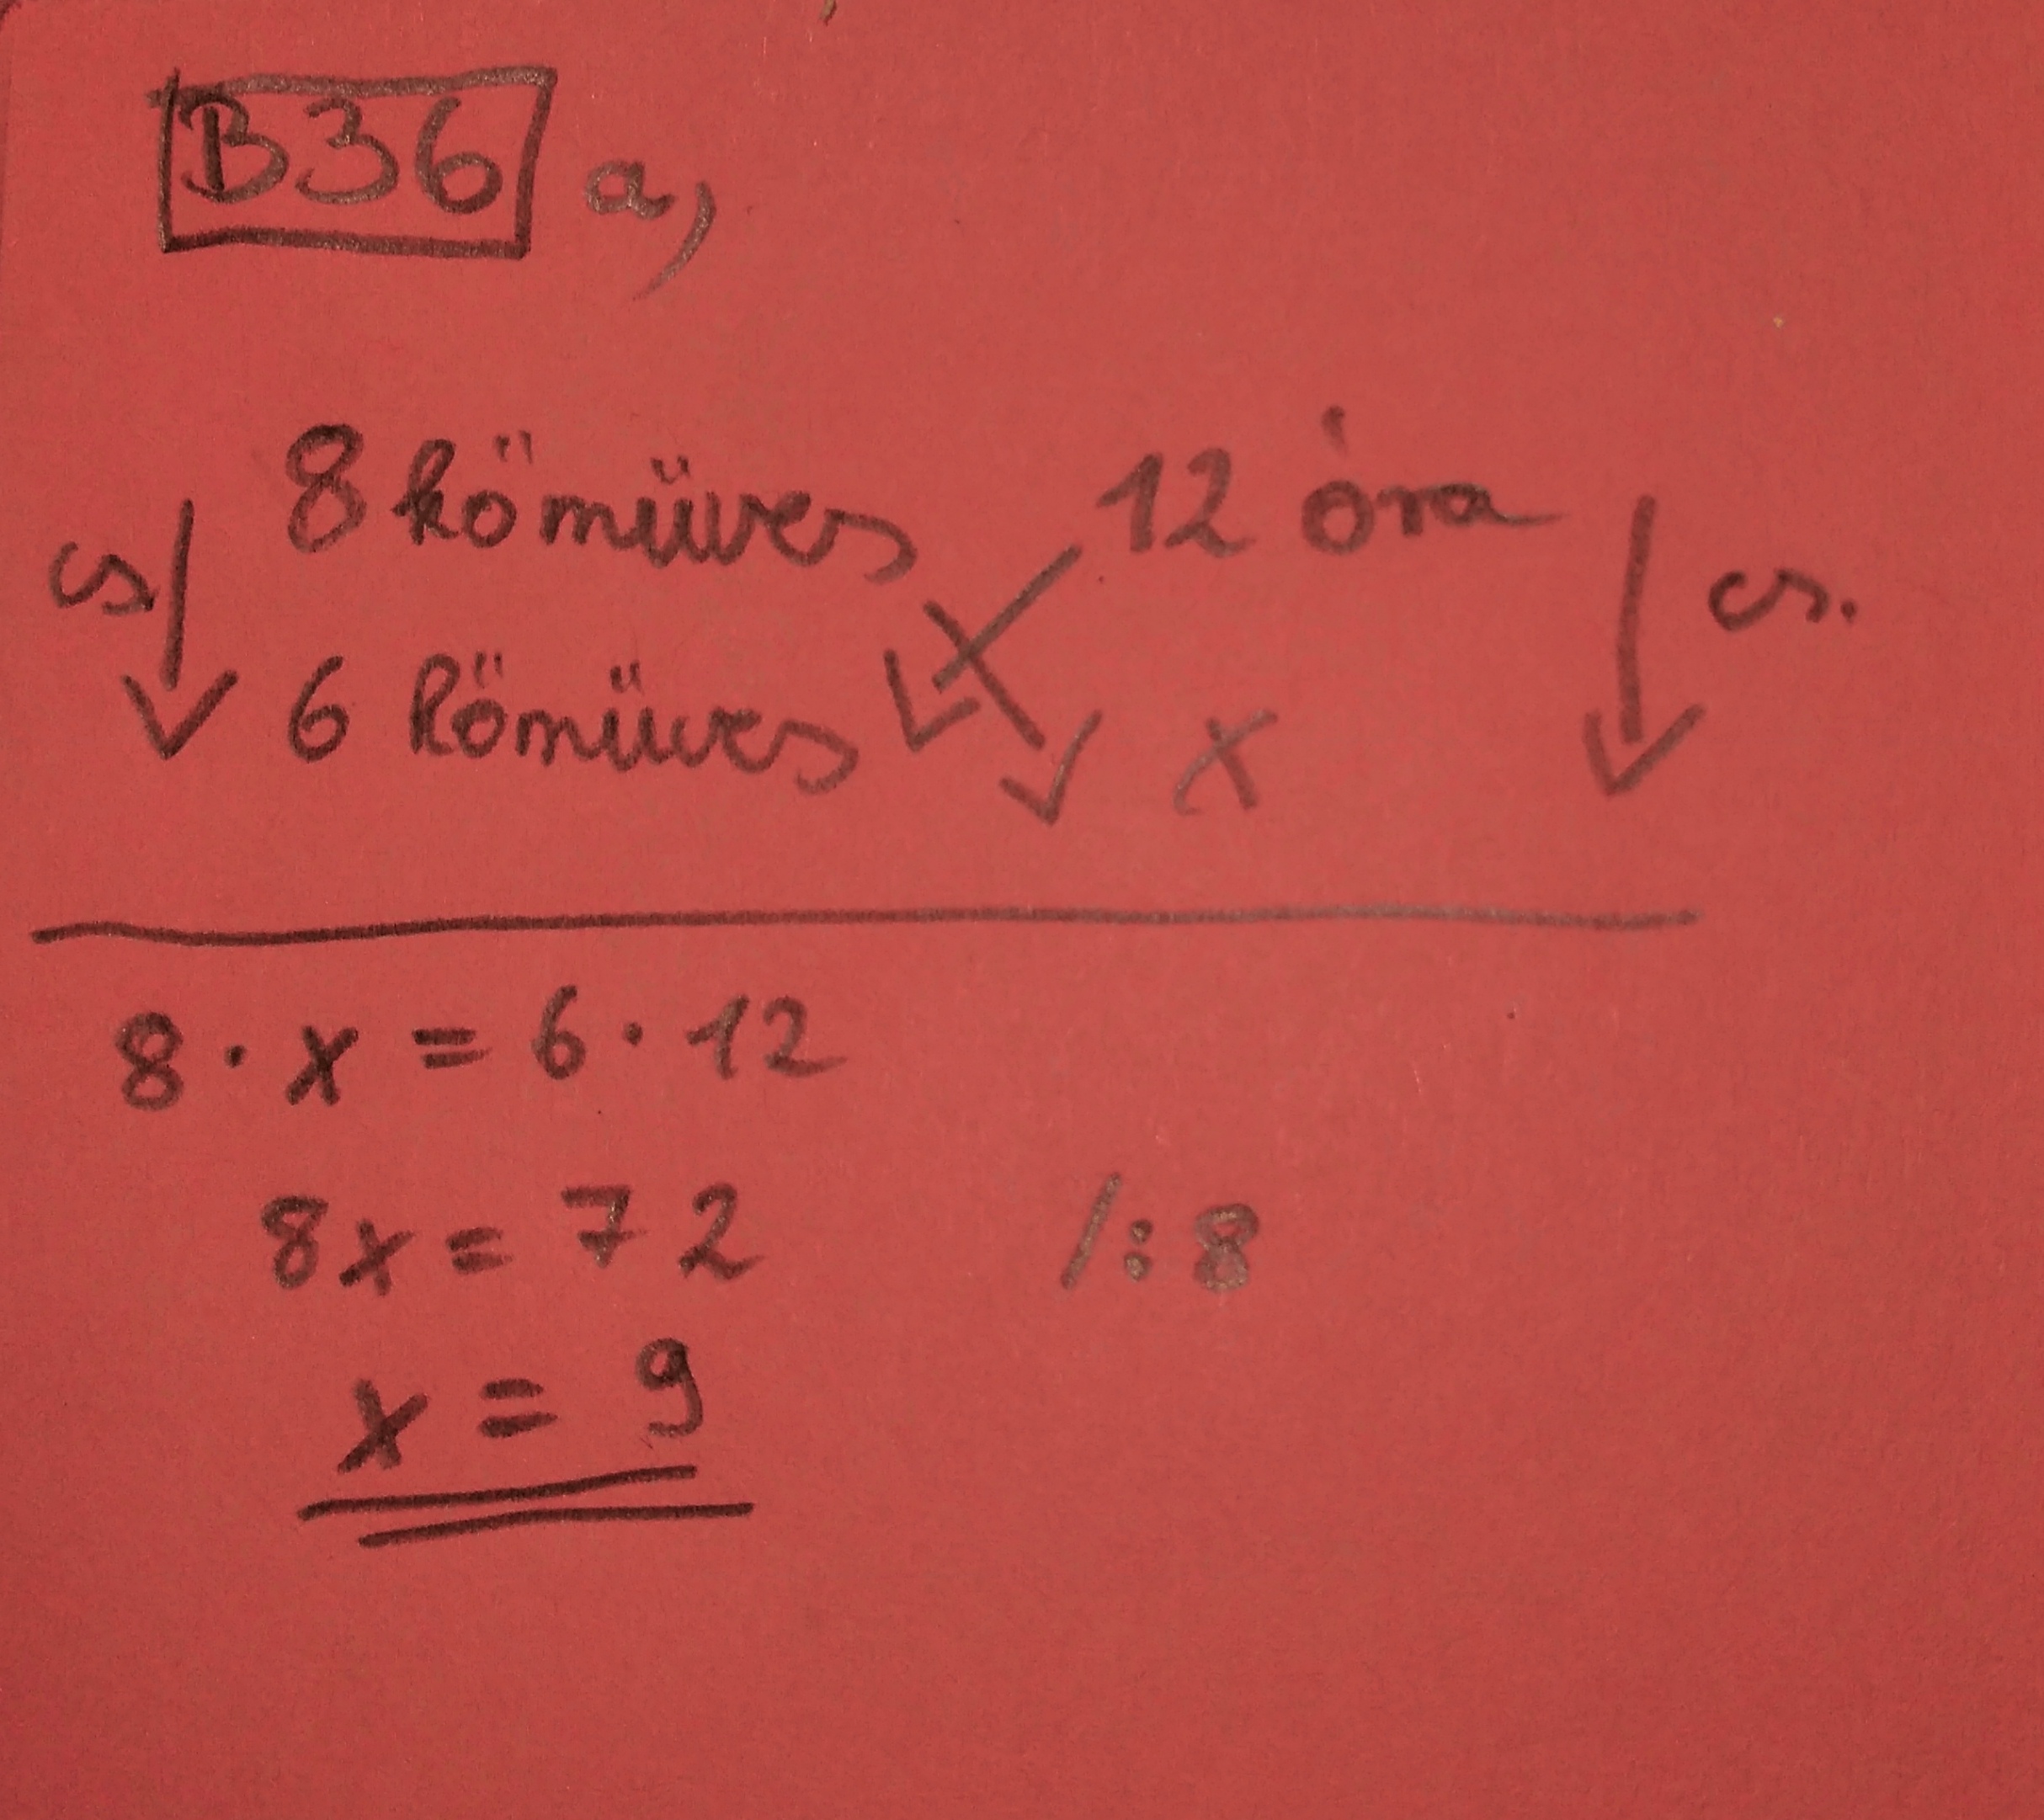 B36 a,
8 kőműves 12 óra
cs cs.
6 kőműves x
8 · x = 6 · 12
8x = 72 /: 8
x = 9